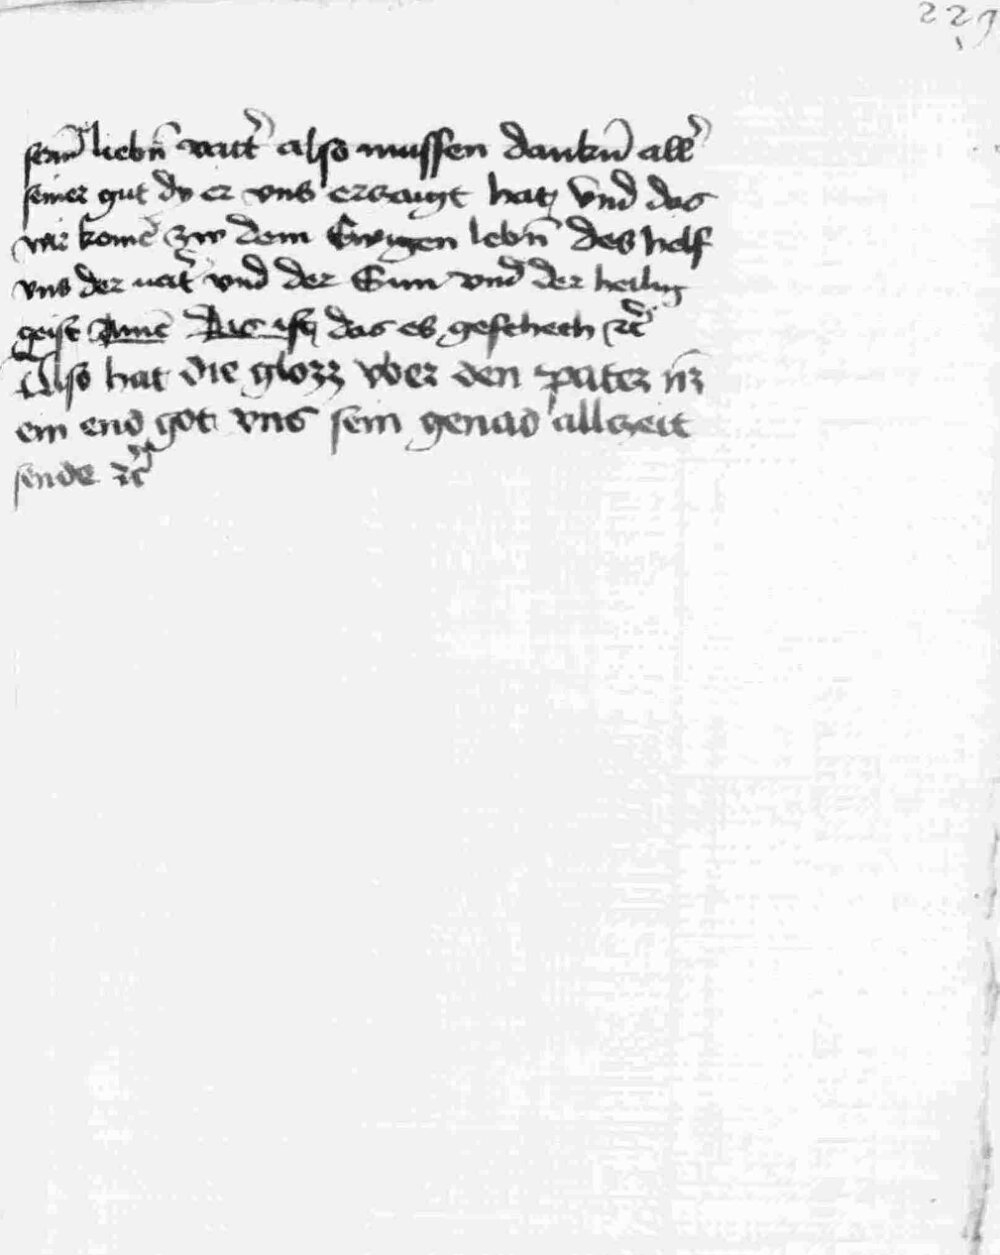 229
liebn̄ vatt̓ also mussen dankn̄ all̓
seiner gut dy er vns erzaigt hat vnd das
wir komē zw dem Ewigen lebn̄ des helf
vns der uat̓ vnd der Sun vnd der heilig
geist Amē das ist das es geschech ꝛc̄
Also hat die glozz vber den pater nr̄
ein end got vns sein genad allczeit
sende ꝛc̄